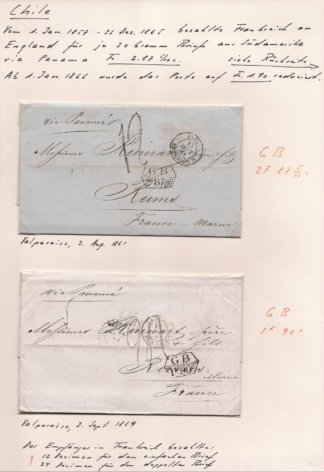 Chile
Vom 1. Jan. 1857 - 31 Dez. 1865 bezahlte Frankreich an
England für je 30 Gramm Briefe aus Südamerika
via Panama Fr. 2.87 ½c. siehe Rückseite
Ab 1. Jan. 1866 wurde das Porto auf Fr. 1.90 reduziert.
via Panamá
12
Messieurs Reinart père & fils
GB
Reims
France - Marne
GB
2F 87 5/10 c
Valparaiso, 2. Aug. 1861
via Panamá
Messieurs Reinart père
& fils
GB
Reims
Marne
France
GB
1F 90c
Valparaiso, 2. Sept. 1869
Der Empfänger in Frankreich bezahlte:
12 Dezimen für den einfachen Brief
24 Dezimen für den doppelten Brief